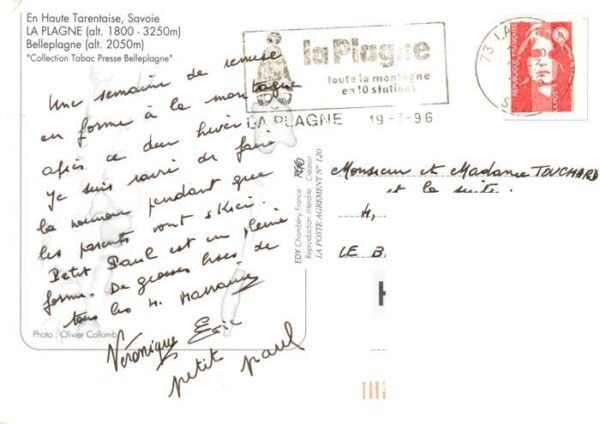 En Haute Tarentaise, Savoie
LA PLAGNE (alt. 1800 - 3250m)
Belleplagne (alt. 2050m)
"Collection Tabac Presse Belleplagne"
Une semaine de remise
en forme à la montagne
après ce dur hiver
Je suis ravie de faire
la nounou pendant que
les parents vont skier.
Petit Paul est en pleine
forme. De grosses bises de
tous les 4.
Véronique Eric
petit paul
Photo : Olivier Collomb
la Plagne
toute la montagne
en 10 stations
LA PLAGNE 19-3-96
73 LA
REPUBLIQUE FRANÇAISE
LA POSTE
EDY Chambéry France
Reproduction interdite Création
LA POSTE AGREMENT N° 120
Monsieur et Madame TOUCHARD
et la suite.
4,
LE B